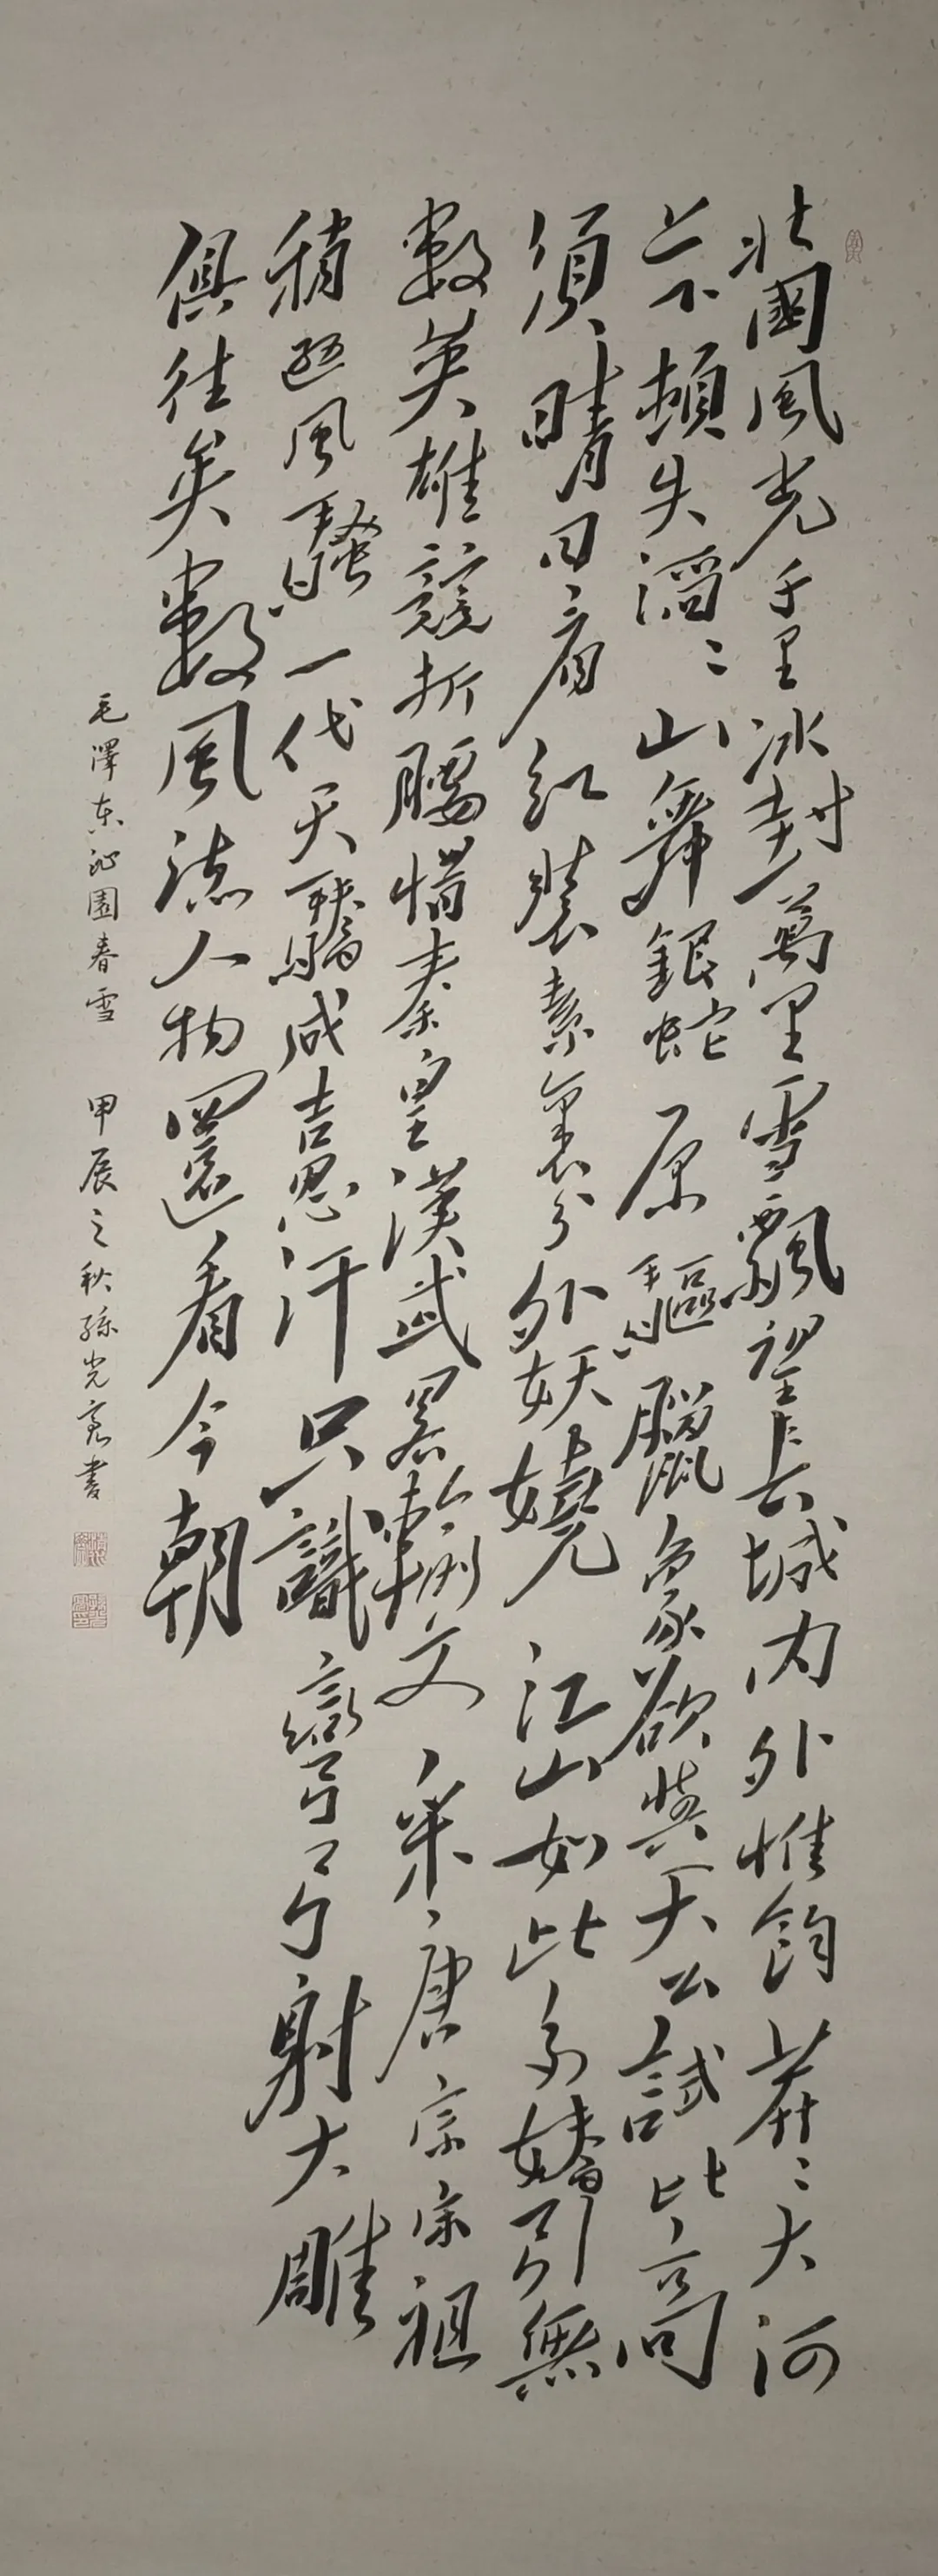 北國風光千里冰封萬里雪飄望長城内外惟餘莽〻大河
上下頓失滔〻山舞銀蛇原驅臘象欲與天公試比高
須晴日看紅裝素裹分外妖嬈江山如此多嬌引無
數英雄競折腰惜秦皇漢武畧輸文采唐宗宋祖
稍遜風騷一代天驕成吉思汗只識彎弓射大雕
俱往矣數風流人物還看今朝
毛澤東沁園春雪 甲辰之秋孫光亮書